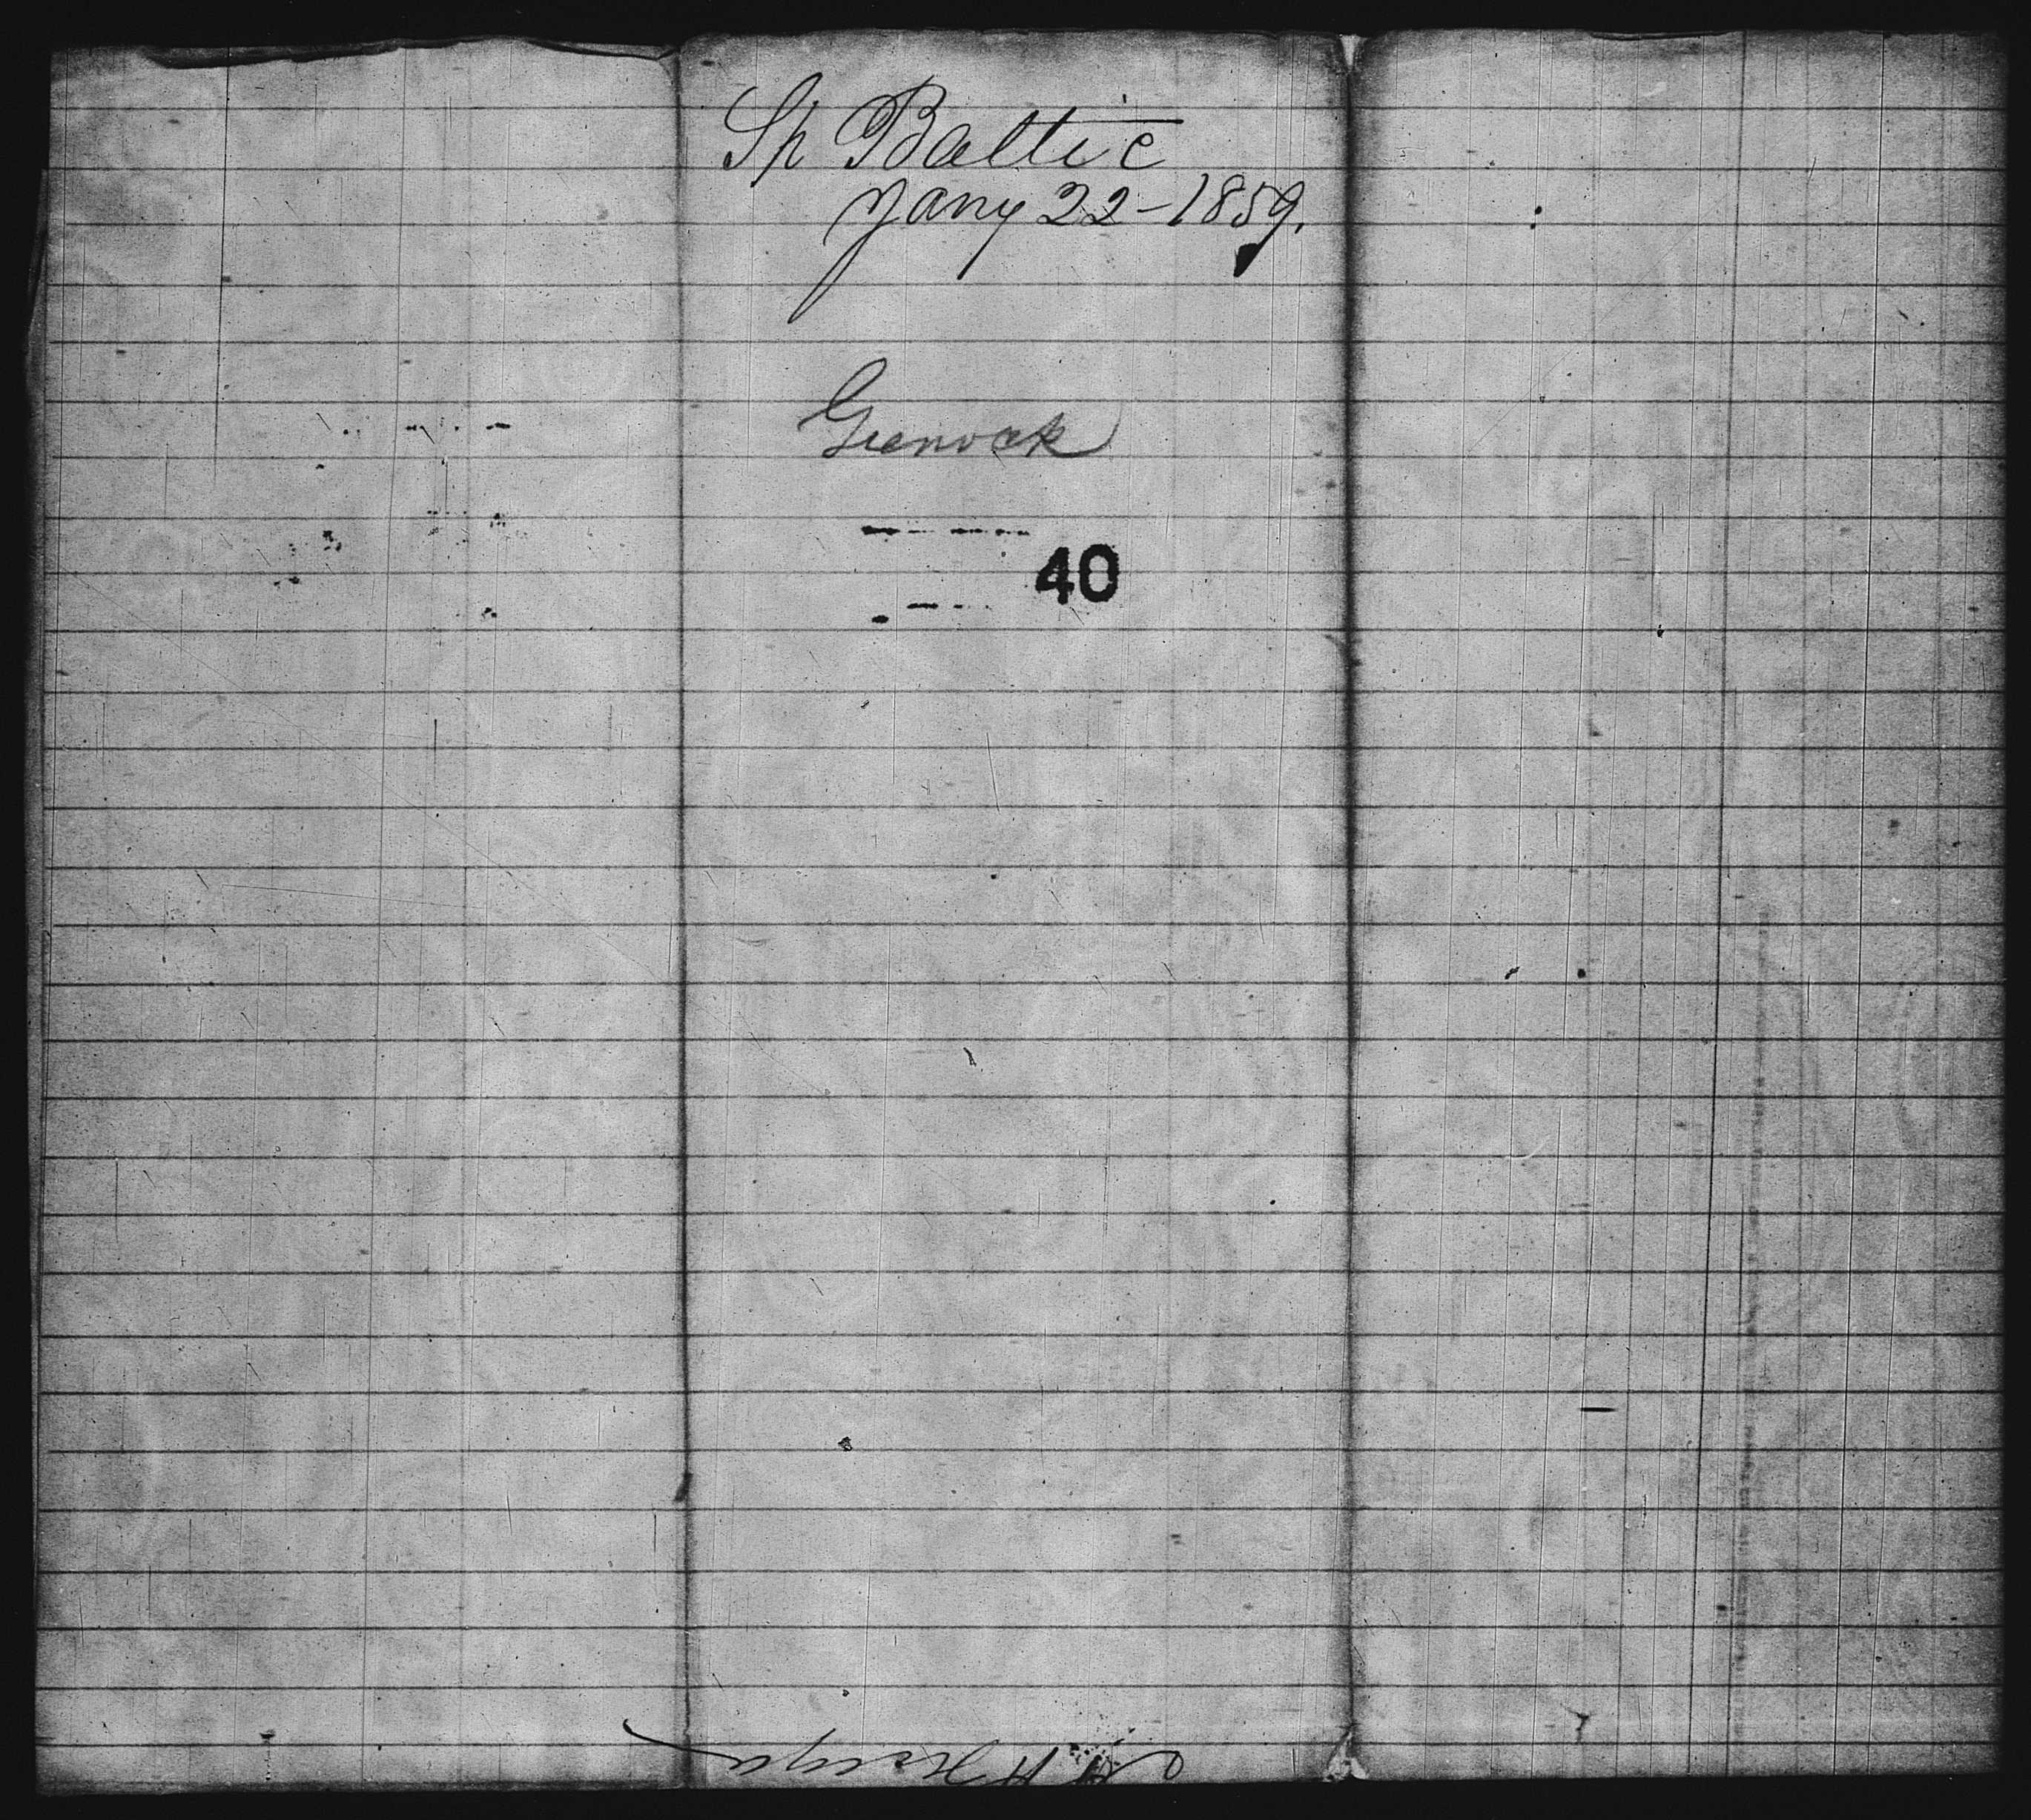 Sh Baltic
Jany 22-1859.
Greenock
40